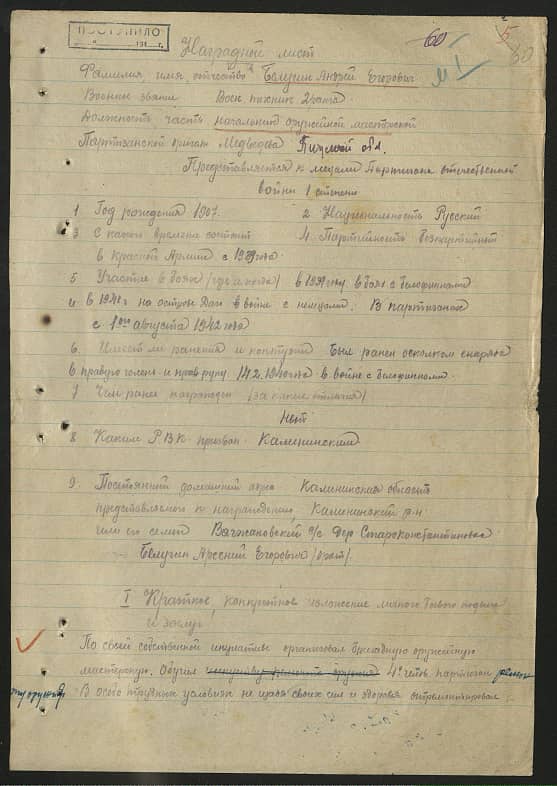 60
Наградной лист
Фамилия имя, отчество Белугин Андрей Егорович
Военное звание Воен. техник 2 ранга
Должность часть начальник оружейной мастерской
Партизанской бригады Медведева
Представляется к медали Партизана отечественной
войны 1 степени
1 Год рождения 1907. 2 Национальность Русский
3 С какого времени состоит 4. Партийность Безпартийный
в Красной Армии с 1939 года
5 Участие в боях (где и когда) в 1939 году в боях с белофинами
и в 1941г на острове Даго в войне с немцами. В партизанах
с 1го августа 1942 года
6. Имеет ли ранения и контузии Был ранен осколком снаряда
в правую голень и прав руку. 14.2.1940 года в войне с белофинами.
7 Чем ранее награжден (за какие отличия)
Нет
8 Каким Р В К призван Калининский
9. Постоянный домашний адрес Калининская область
представляемого к награждению, Калининский р-н
или его семьи Вагжановский с/с Дер Староконстантиновка
Белугин Арсений Егорович (брат).
I Краткое, конкретное изложение личного боевого подвига
и заслуг
По своей собственной инциативе организовал бригадную оружейную
мастерскую. Обучил 4х чел. партизан
В особо трудных условиях не щадя своих сил и здоровья отремонтировал